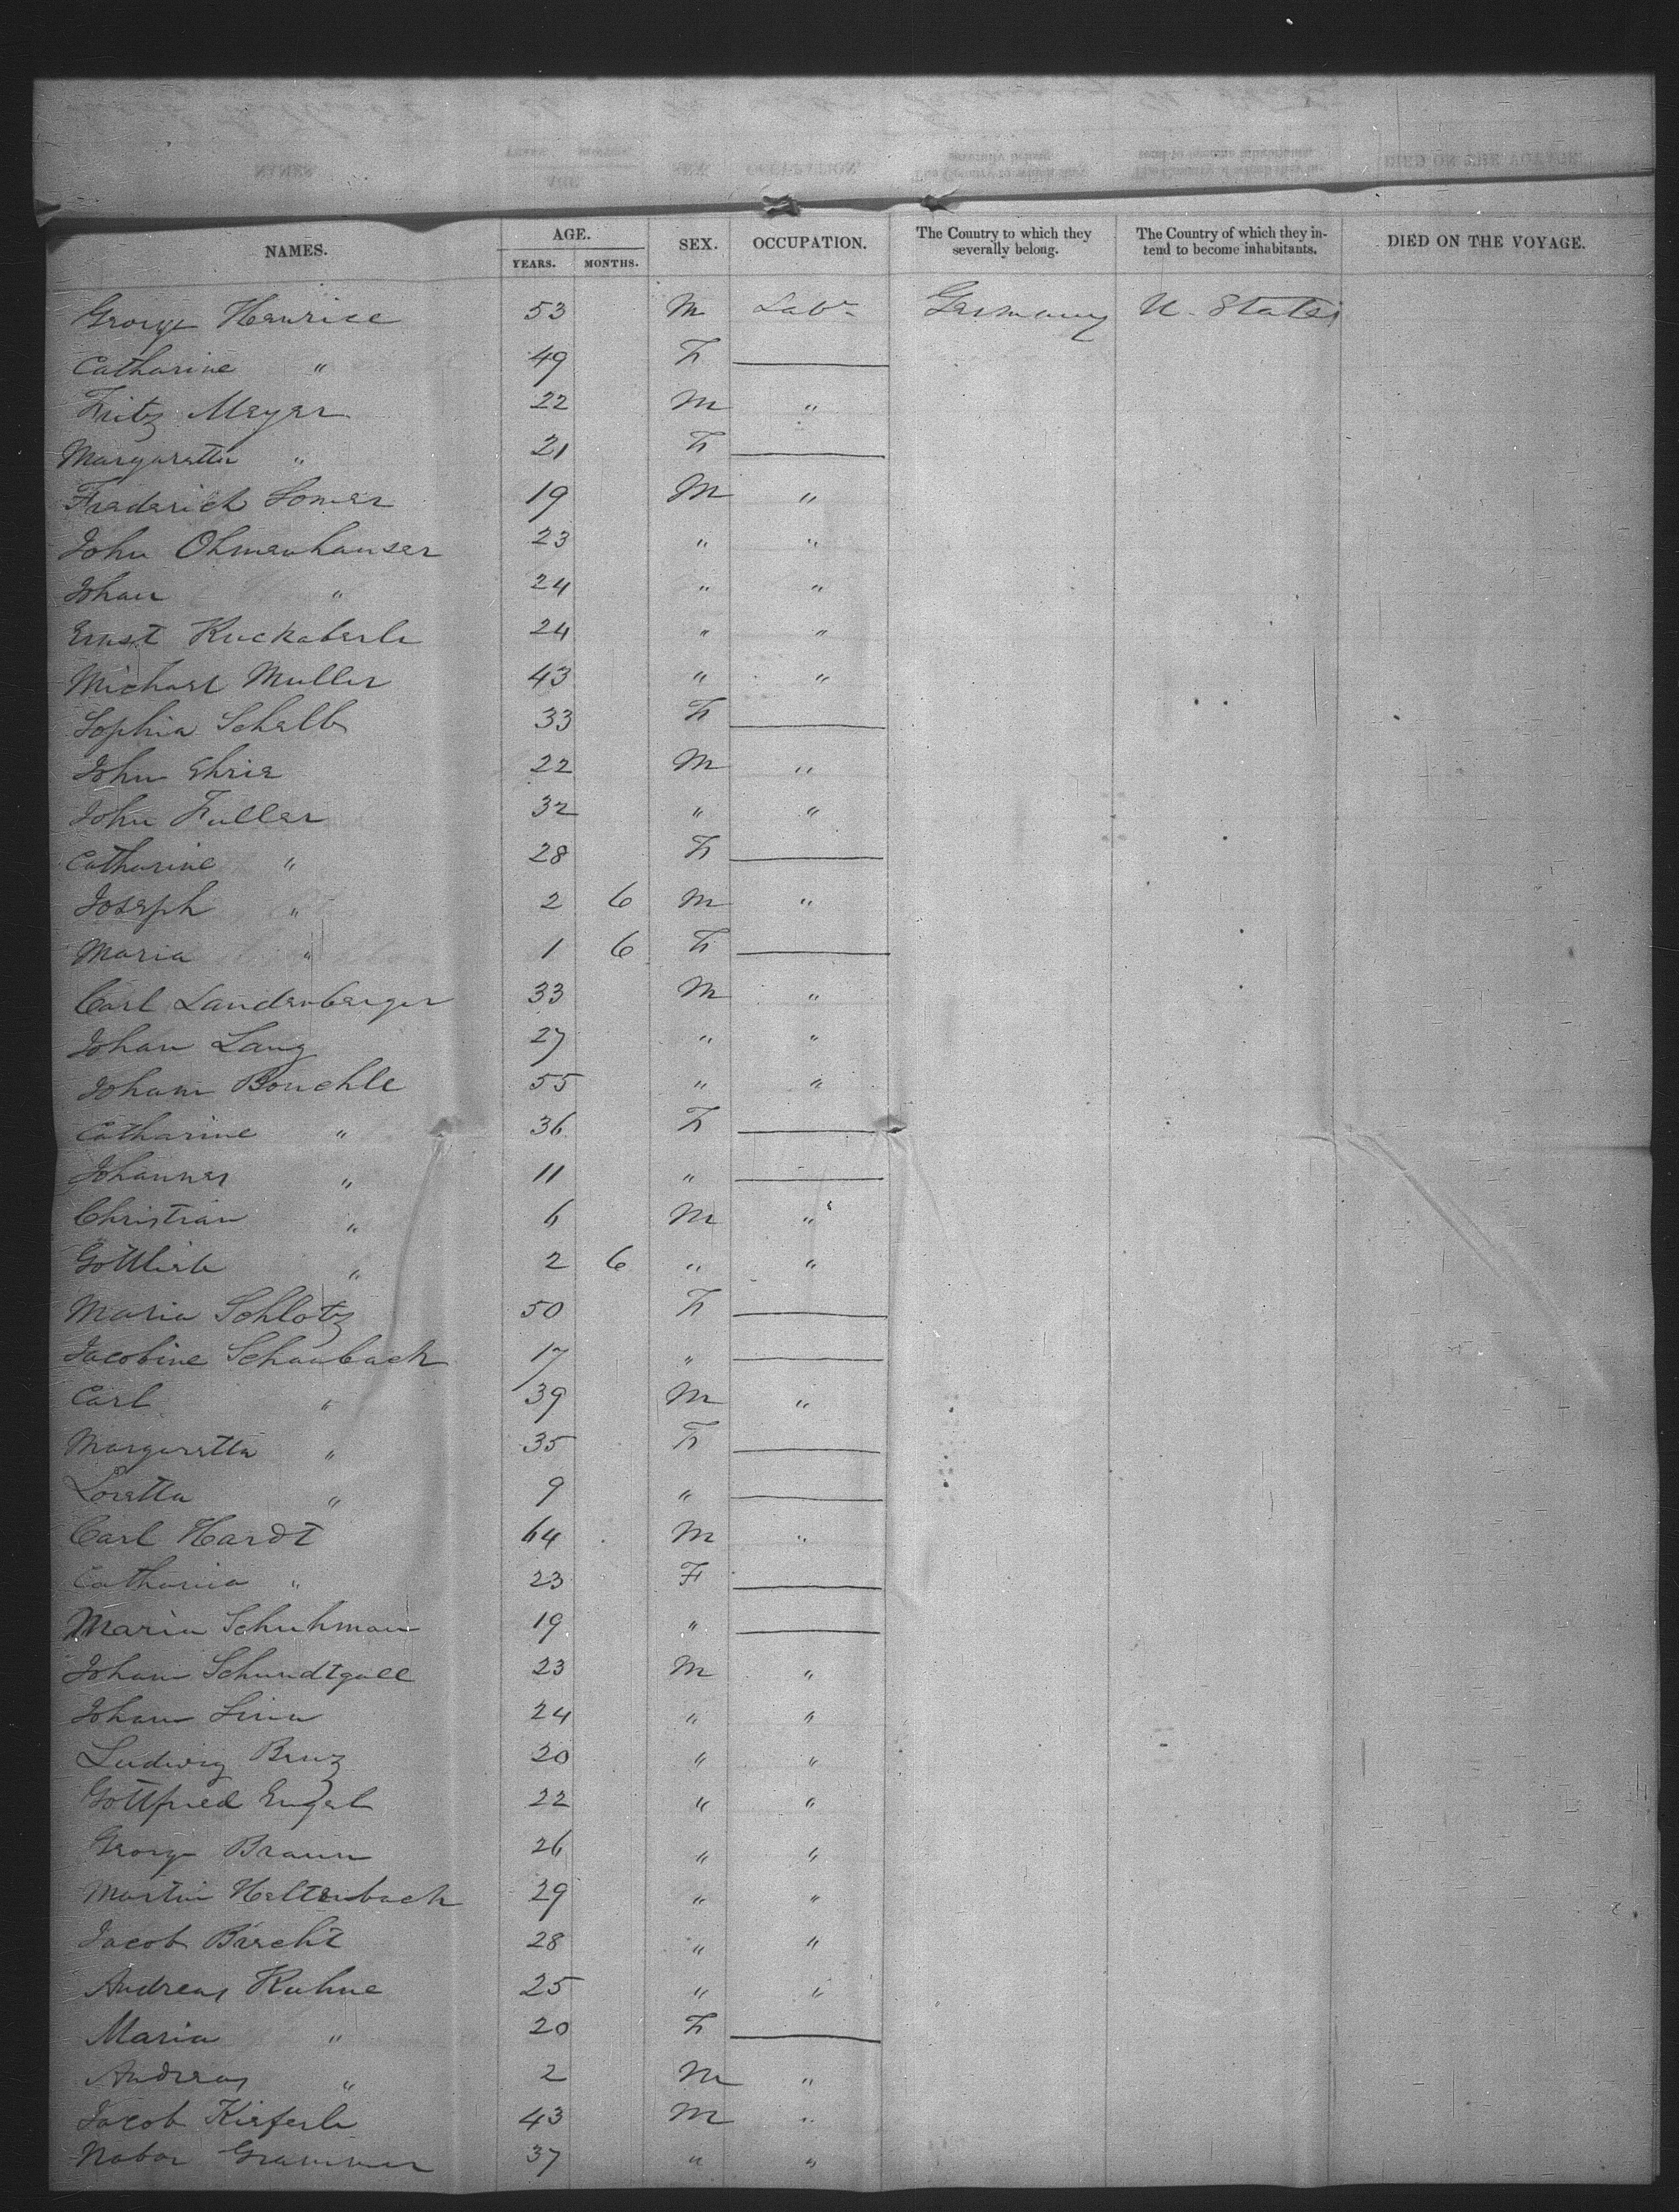 NAMES. AGE. YEARS. MONTHS. SEX. OCCUPATION. The Country to which they severally belong. The Country of which they intend to become inhabitants. DIED ON THE VOYAGE.
George Henrice 53 M Labr Germany U. States
Catharine " 49 F
Fritz Meyer 22 M "
Margaretta " 21 F
Frederich Somer 19 M "
John Ohmenhauser 23 " "
Johan " 24 " "
Ernst Kuckaberle 24 " "
Michael Muller 43 " "
Sophia Schelb 33 F
John Ehrie 22 M "
John Fuller 32 " "
Catharine " 28 F
Joseph " 2 6 M "
Maria " 1 6 F
Carl Landenberger 33 M "
Johan Lang 27 " "
Joham Bouchle 55 " "
Catharine " 36 F
Johannes " 11 "
Christian " 6 M "
Gottlieb " 2 6 " "
Maria Schlotz 50 F
Jacobine Schaubach 17 "
Carl " 39 M "
Margaretta " 35 F
Loretta " 9 "
Carl Hardt 64 M "
Catharia " 23 F
Maria Schuhman 19 "
Johan Schmidtgall 23 M "
Johan Lina 24 " "
Ludwig Bruz 20 " "
Gottfried Engel 22 " "
George Braun 26 " "
Martin Heltenbach 29 " "
Jacob Barcht 28 " "
Andreas Kuhne 25 " "
Maria " 20 F
Andreas " 2 M "
Jacob Kieferle 43 M "
Nabor Grammer 37 " "